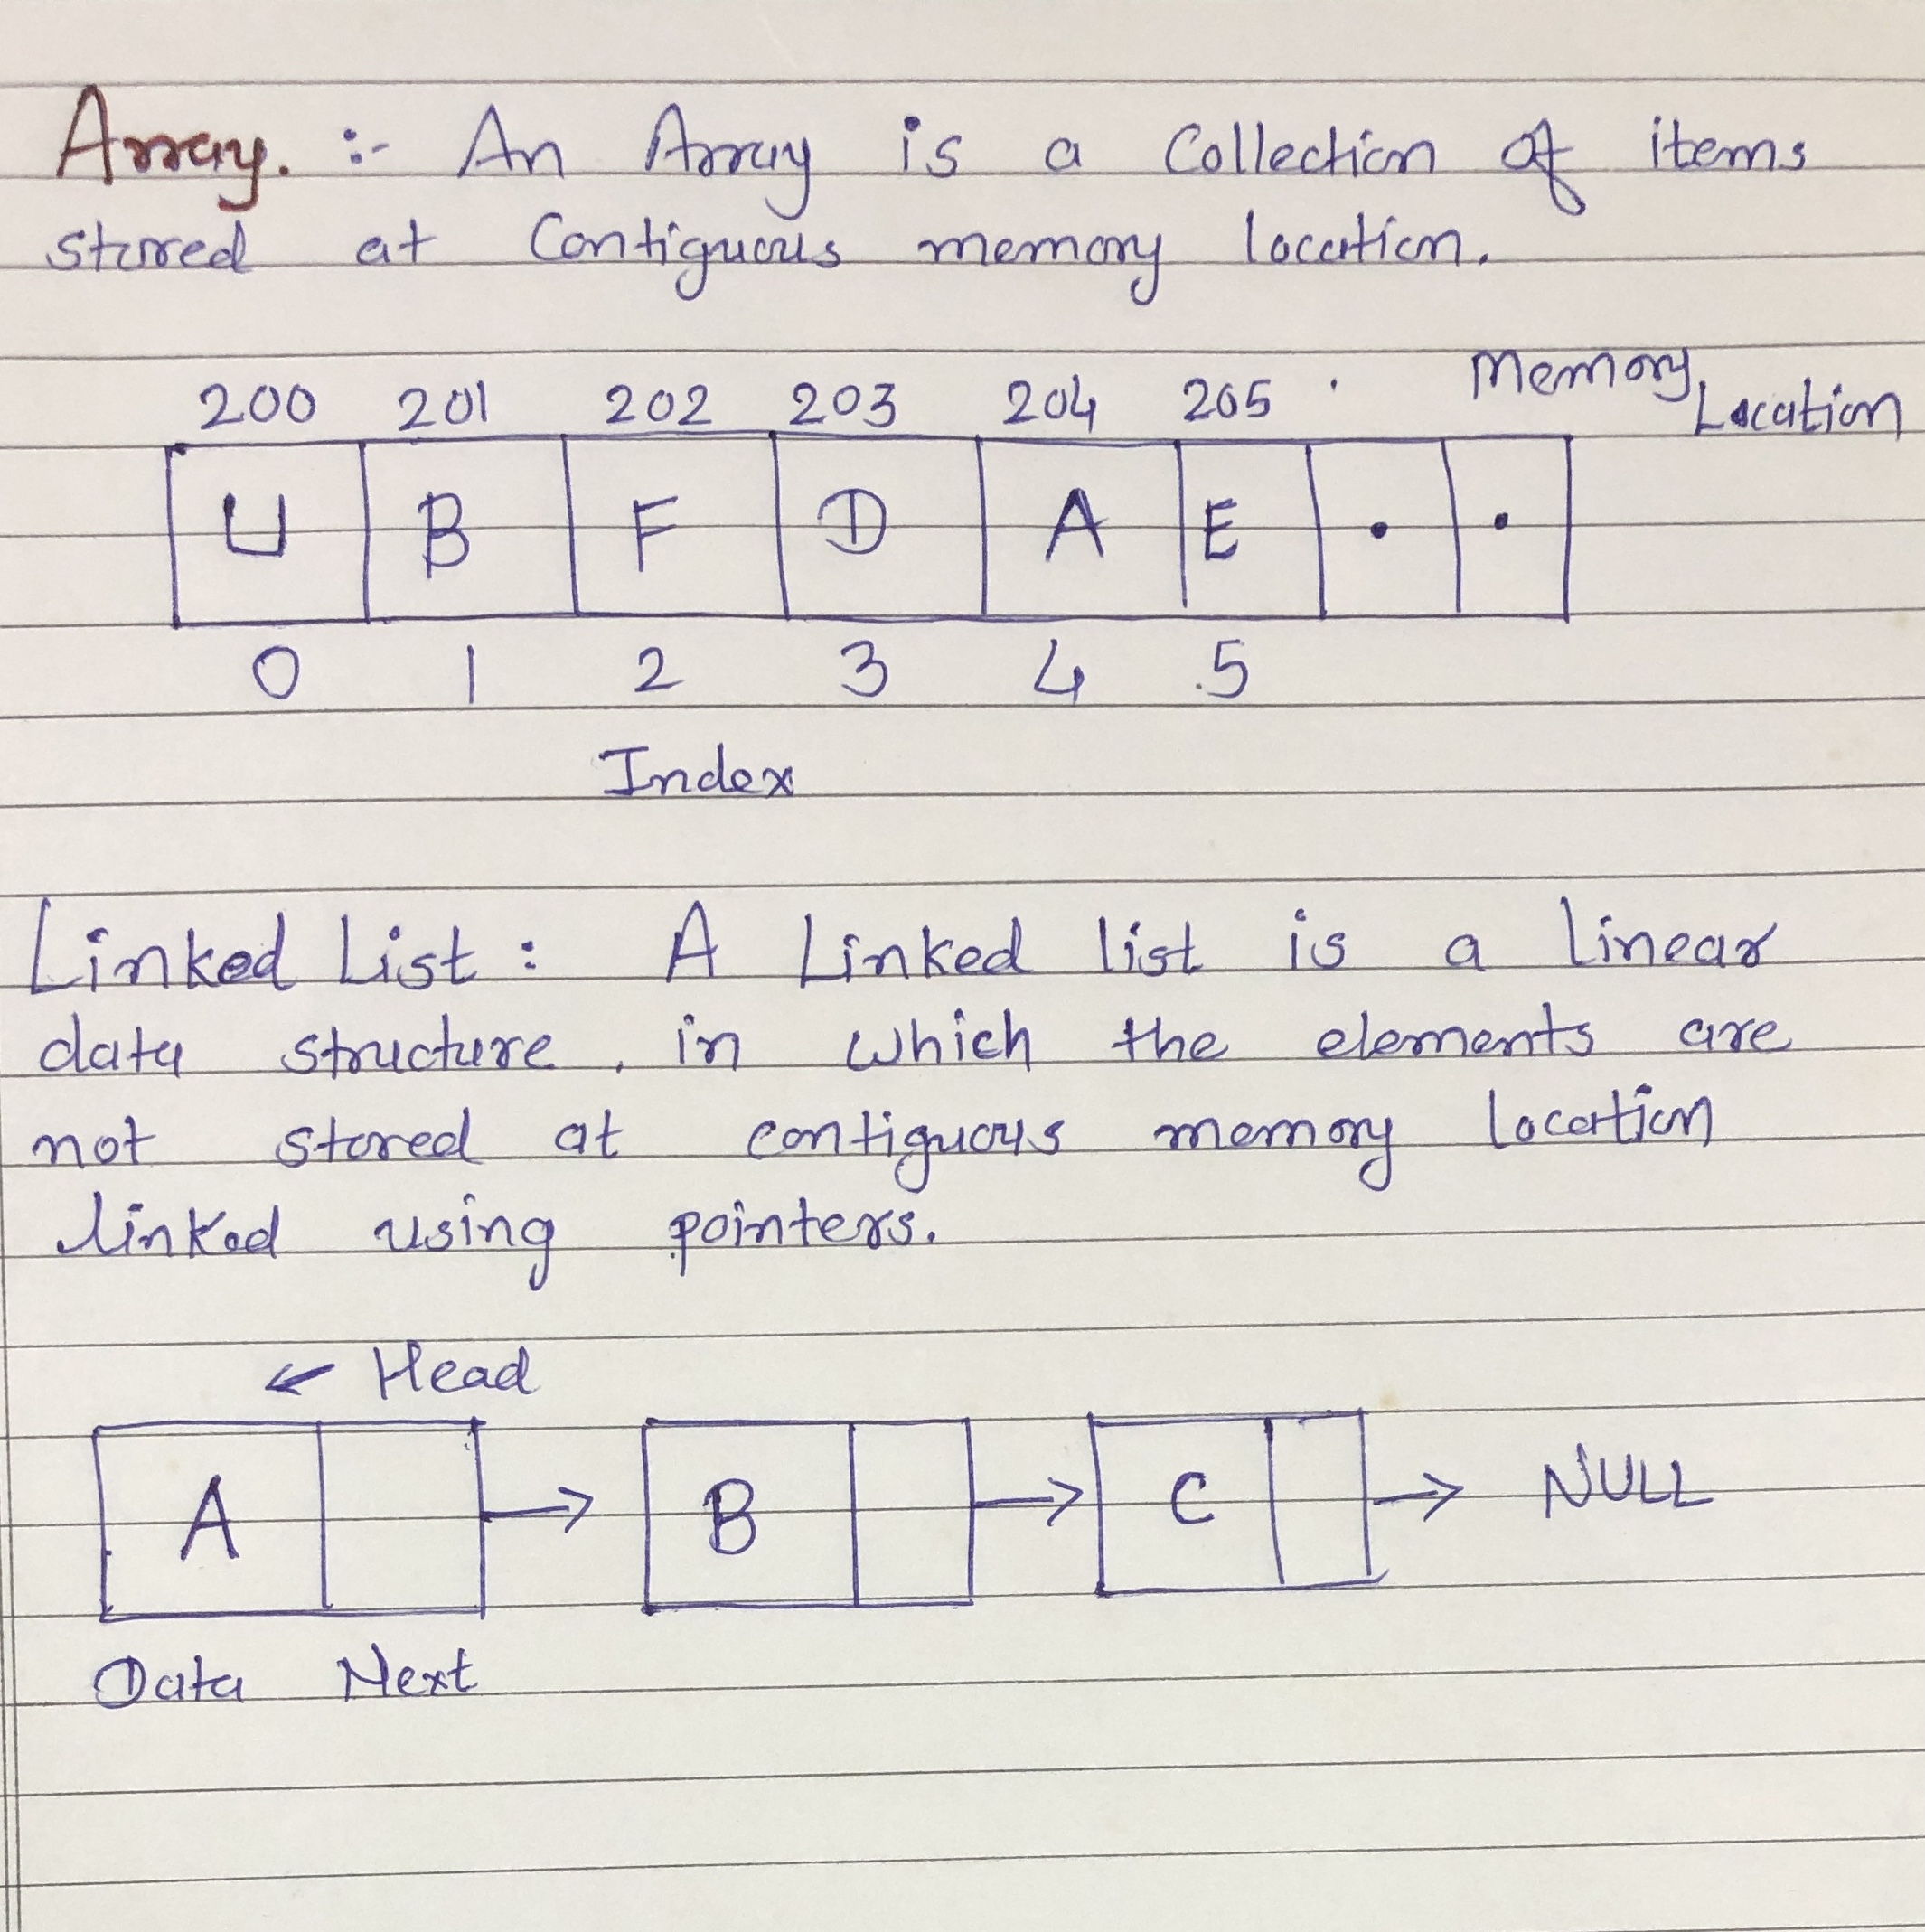 Array. :- An Array is a Collection of items
stored at Contiguous memory location.
200 201 202 203 204 205 . Memory Location
U B F D A E . .
0 1 2 3 4 5
Index
Linked List : A Linked list is a linear
data structure, in which the elements are
not stored at contiguous memory location
linked using pointers.
← Head
A → B → C → NULL
Data Next